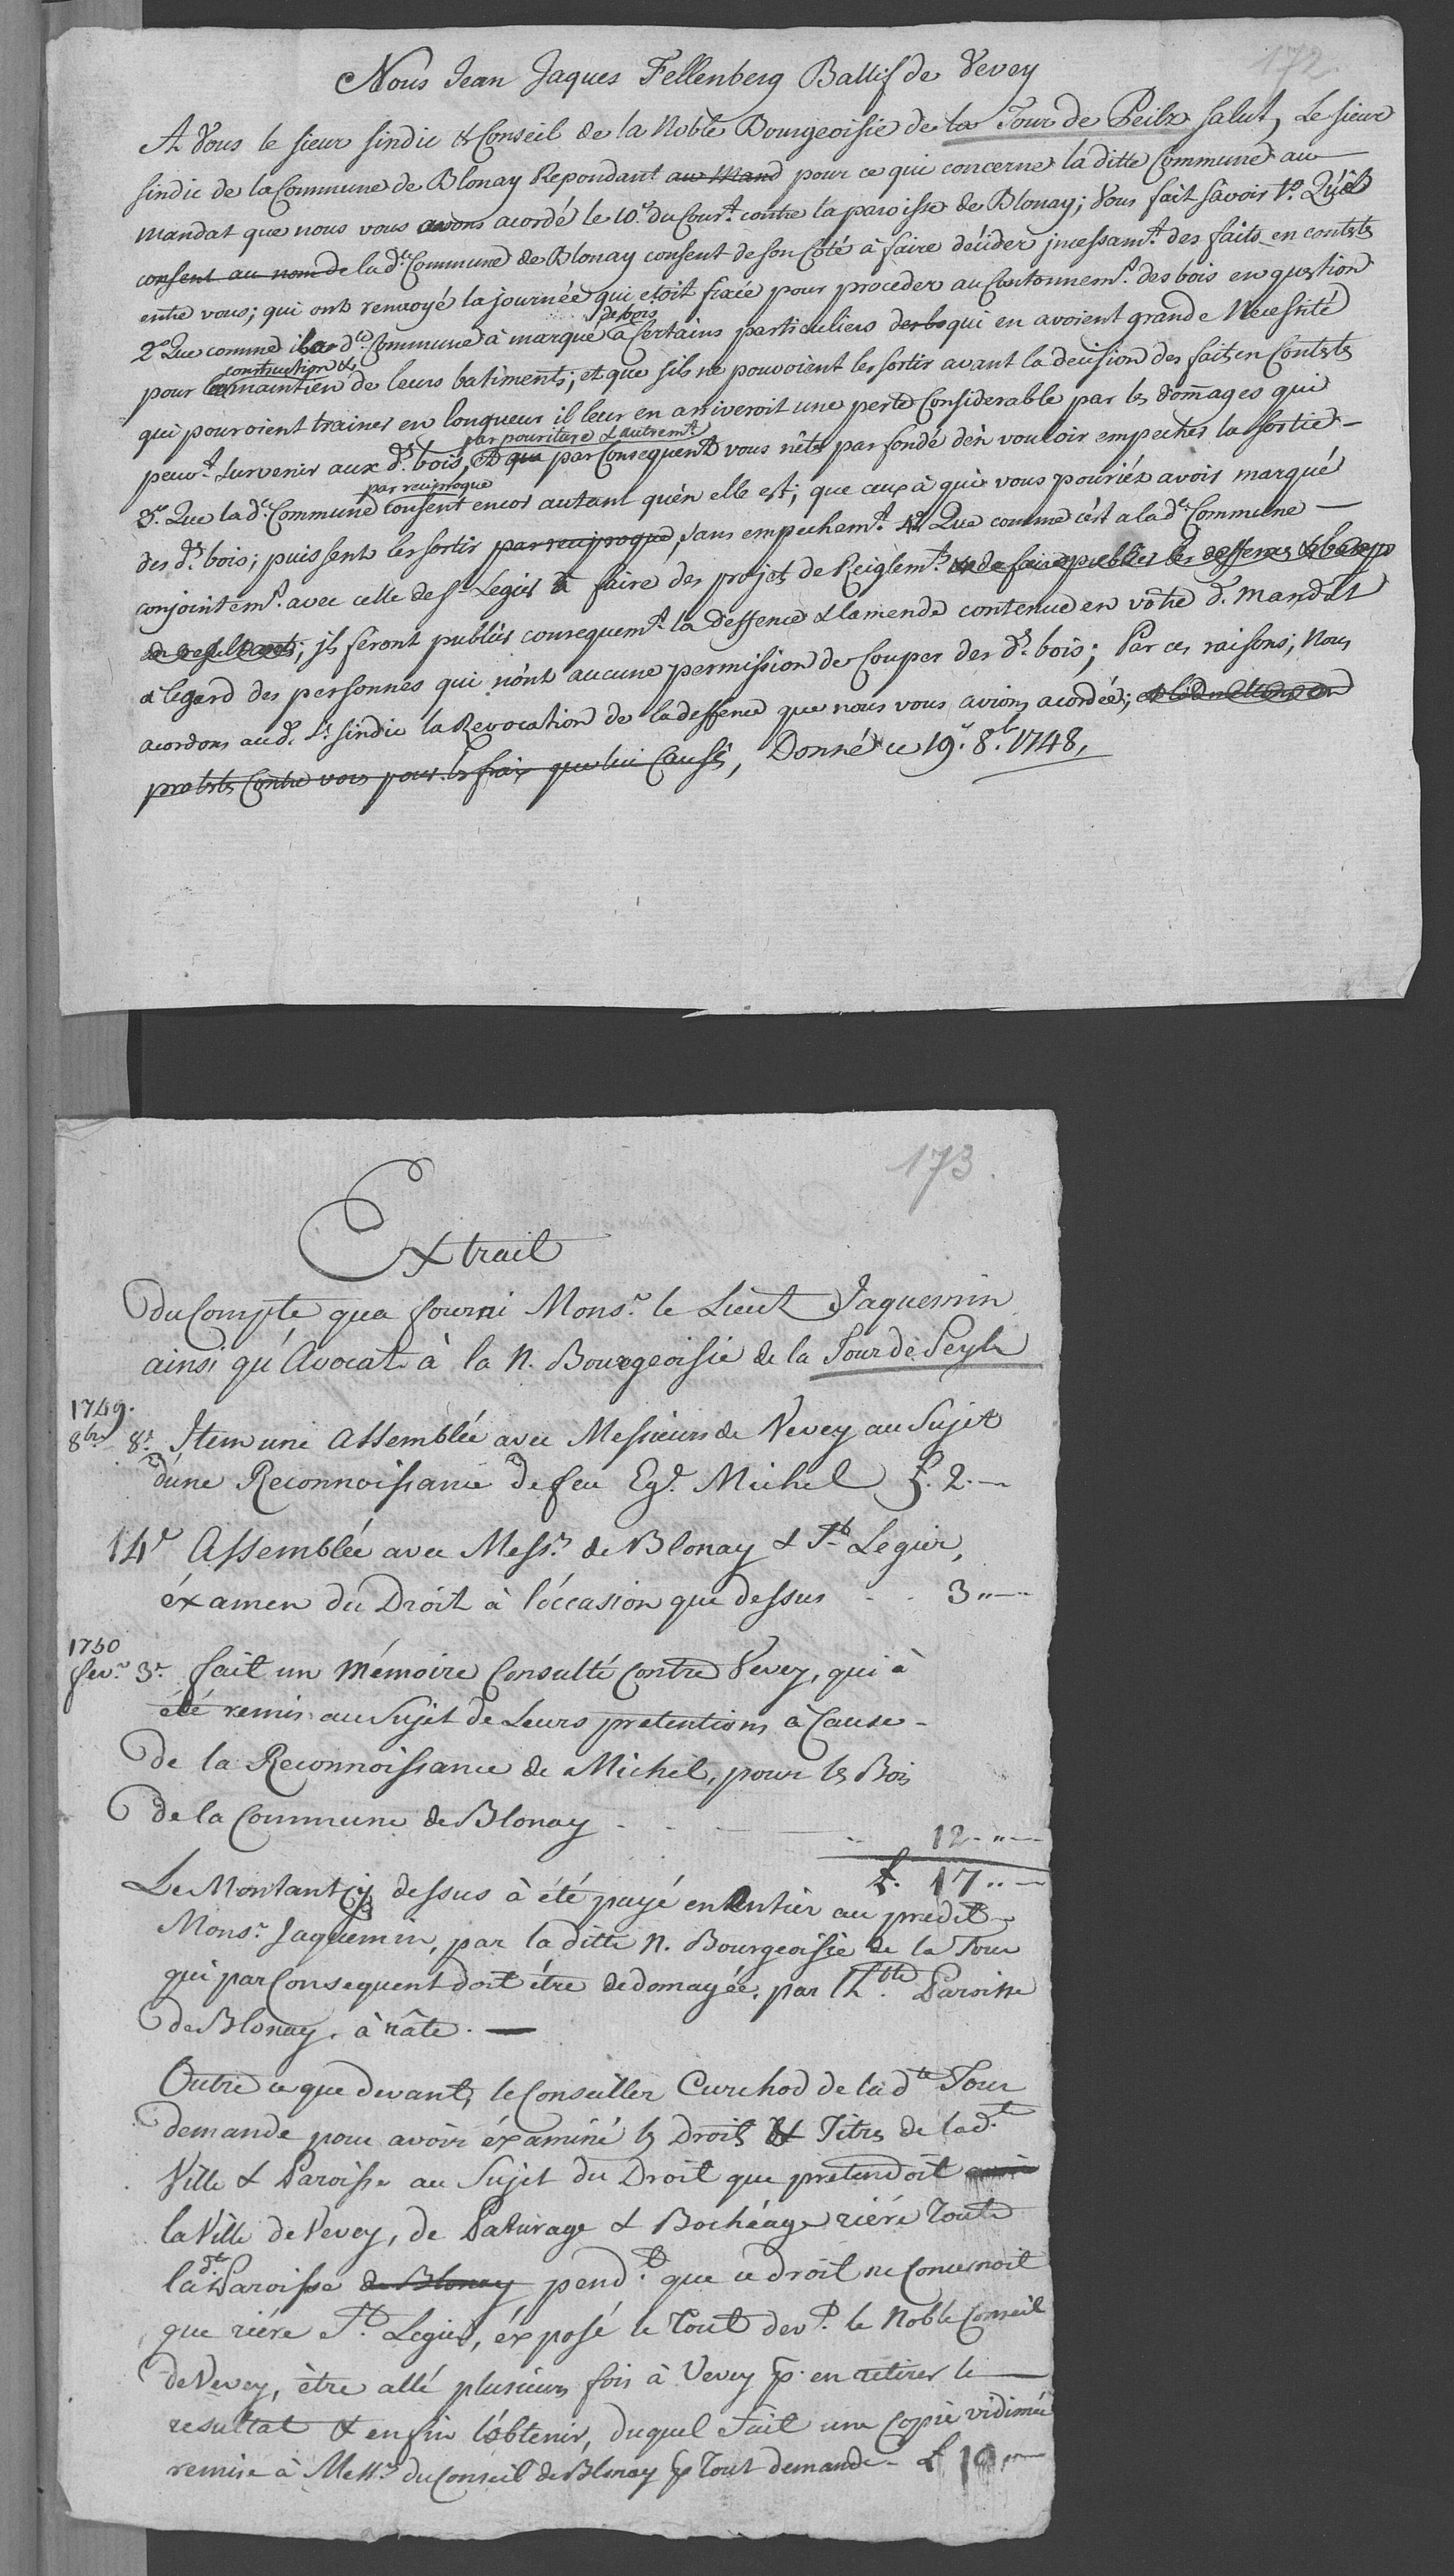 172.
Nous Jean Jaques Fellenberg Ballif de Vevey
A Vous le sieur sindic & Conseil de la Noble Bourgeoisie de la Tour de Peilz salut, Le sieur
sindic de la Commune de Blonay Repondant au Mand pour ce qui concerne la ditte Commune au
Mandat que nous vous avons acordé le 10.e du Cour.t contre la paroisse de Blonay; Vous fait savoir 1.o Qu'el
consent au nom de la d.te Commune de Blonay consent de son Coté à faire décider incessam.t des faits en conteste
entre vous; qui ont renvoyé la journée qui etoit fixée pour proceder au Cantonnem.t des bois en question
2.o Que comme la d.te Commune à marqué des bois à Certains particuliers qui en avoient grande Necessité
pour construction & maintien de leurs batiments; et que sils ne pouvoient les sortir avant la decision des faits en Conteste
qui pouroient trainer en longueur il leur en ariveroit une perte Considerable par les dommages qui
peuv.t survenir aux d.s bois, par pouriture & autrem.t Et que par Consequent vous nêtes pas fondé d'en vouloir empecher la sortie -
3.o Que la d.te Commune par reciproque consent encor autant qu'en elle est; que ceux à qui vous pouriéz avoir marqué
des d.s bois; puissent les sortir par reciproque, sans empechem.t 4.o Que comme c'est a la d.te Commune -
conjointem.t avec celle de S.t Legier à faire des projets de Reiglem.t & de faire publier les deffenses & les bamps
en resultants; ils seront publiés consequem.t la deffence & lamende contenue en vôtre d.t Mandat
a legard des personnes qui n'ont aucune permission de Couper des d.s bois; Par ces raisons; Nous
acordons aud.t S.r sindic la Revocation de la deffence que nous vous avions acordée;
proteste Contre vous pour les frais que lui Causés, Donné ce 19.e 8.bre 1748,
173.
Extrait
du Compte qu'a fourni Mons.r le Lieut Jaquemin
ainsi qu'Avocat à la N. Bourgeoisie de la Tour de Peylz
1749.
8bre 8.e Item une Assemblée avec Messieurs de Vevey au Sujet
d'une Reconnoissance de feu Eg.e Michel £. 2.-
14.e Assemblée avec Mess.rs de Blonay & S.t Legier,
éxamen du Droit à l'occasion que dessus . . 3"-
1750
fev.r 3.e fait un Mémoire Consulté Contre Vevey, qui à
été remis au Sujet de Leurs pretentions à Cause -
de la Reconnoissance de Michel, pour les Bois
de la Commune de Blonay . . - 12."-
£. 17"-
Le Montant cy dessus à été payé en Entier au predit -
Mons.r Jaquemin, par la ditte N. Bourgeoisie de la Tour
qui par Consequent doit être dedomagée, par l'h.ble Paroisse
de Blonay, à râte. -
Outre ce que devant, le Conseiller Curchod de la d.te Tour
demande pour avoir éxaminé les Droits & Titres de lad.te
Ville & Paroisse au Sujet du Droit que pretendoit avoir
la Ville de Vevey, de Paturage & Bochéage riére Toute
la d.te Paroisse de Blonay pend.t que ce droit ne Concernoit
que riére S.t Legier, éxposé le Tout dev.t le Noble Conseil
de Vevey, être allé plusieurs fois à Vevey p. en retirer le -
resultat & enfin l'obtenir, duquel Fait une Copie vidimée
remise à Mess.rs du Conseil de Blonay p Tout demande - £ 10"-